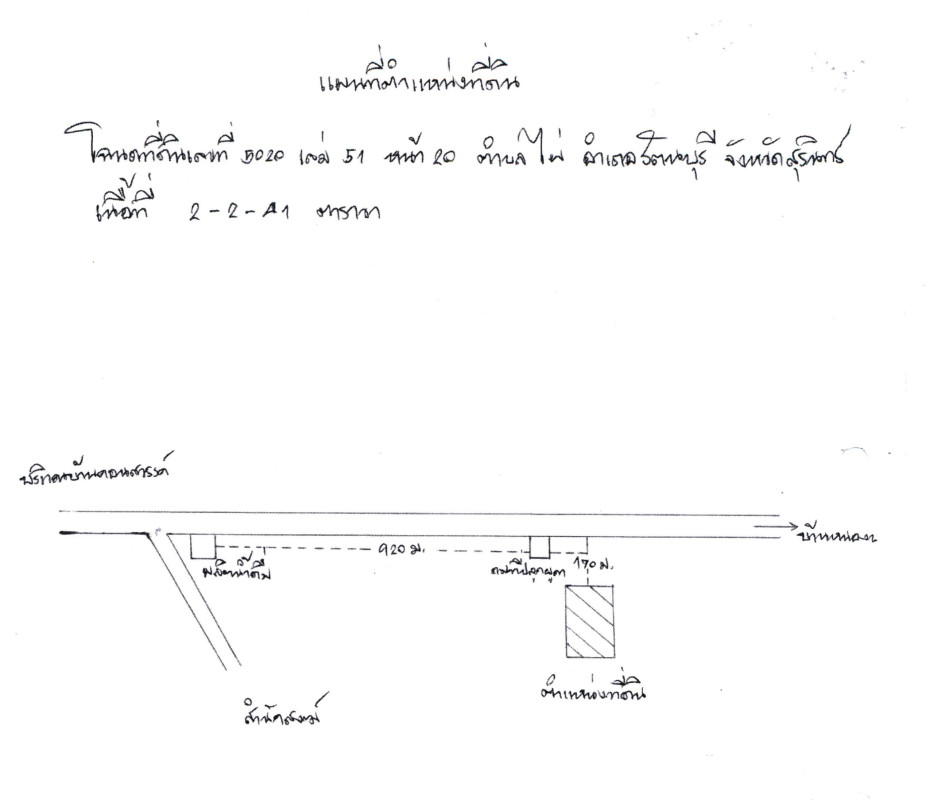 แผนที่ตำแหน่งที่ดิน
โฉนดที่ดินเลขที่ 5020 เล่ม 51 หน้า 20 ตำบล ไผ่ อำเภอรัตนบุรี จังหวัดสุรินทร์
เนื้อที่ 2-2-41 ตารางวา
บริเวณบ้านดอนสวรรค์
บ้านหนอง
920 ม.
170 ม.
ผลิตน้ำดื่ม
ตำแหน่งที่ดิน
สำนักสงฆ์